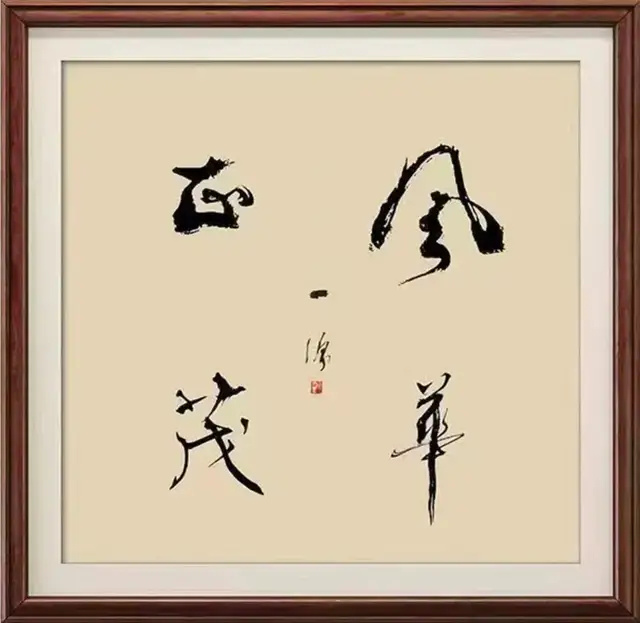 風華
正茂
一